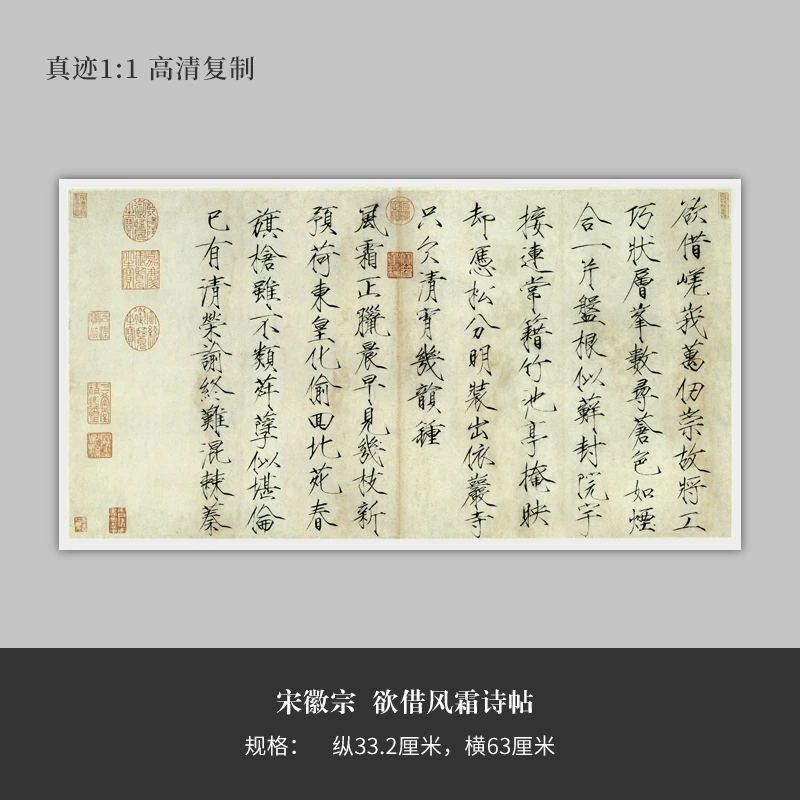 真迹1:1 高清复制
欲借嵯峩萬仞崇故將工
巧狀層峯數尋蒼色如煙
合一片盤根似蘚封院宇
接連常藉竹池亭掩映
却憑松分明裝出依巖寺
只欠清宵幾韻鍾
風霜正臘晨早見幾枝新
預荷東皇化偷回北苑春
旗槍雖不類荈孽似堪倫
已有清榮諭終難混棘蓁
宋徽宗 欲借风霜诗帖
规格: 纵33.2厘米，横63厘米